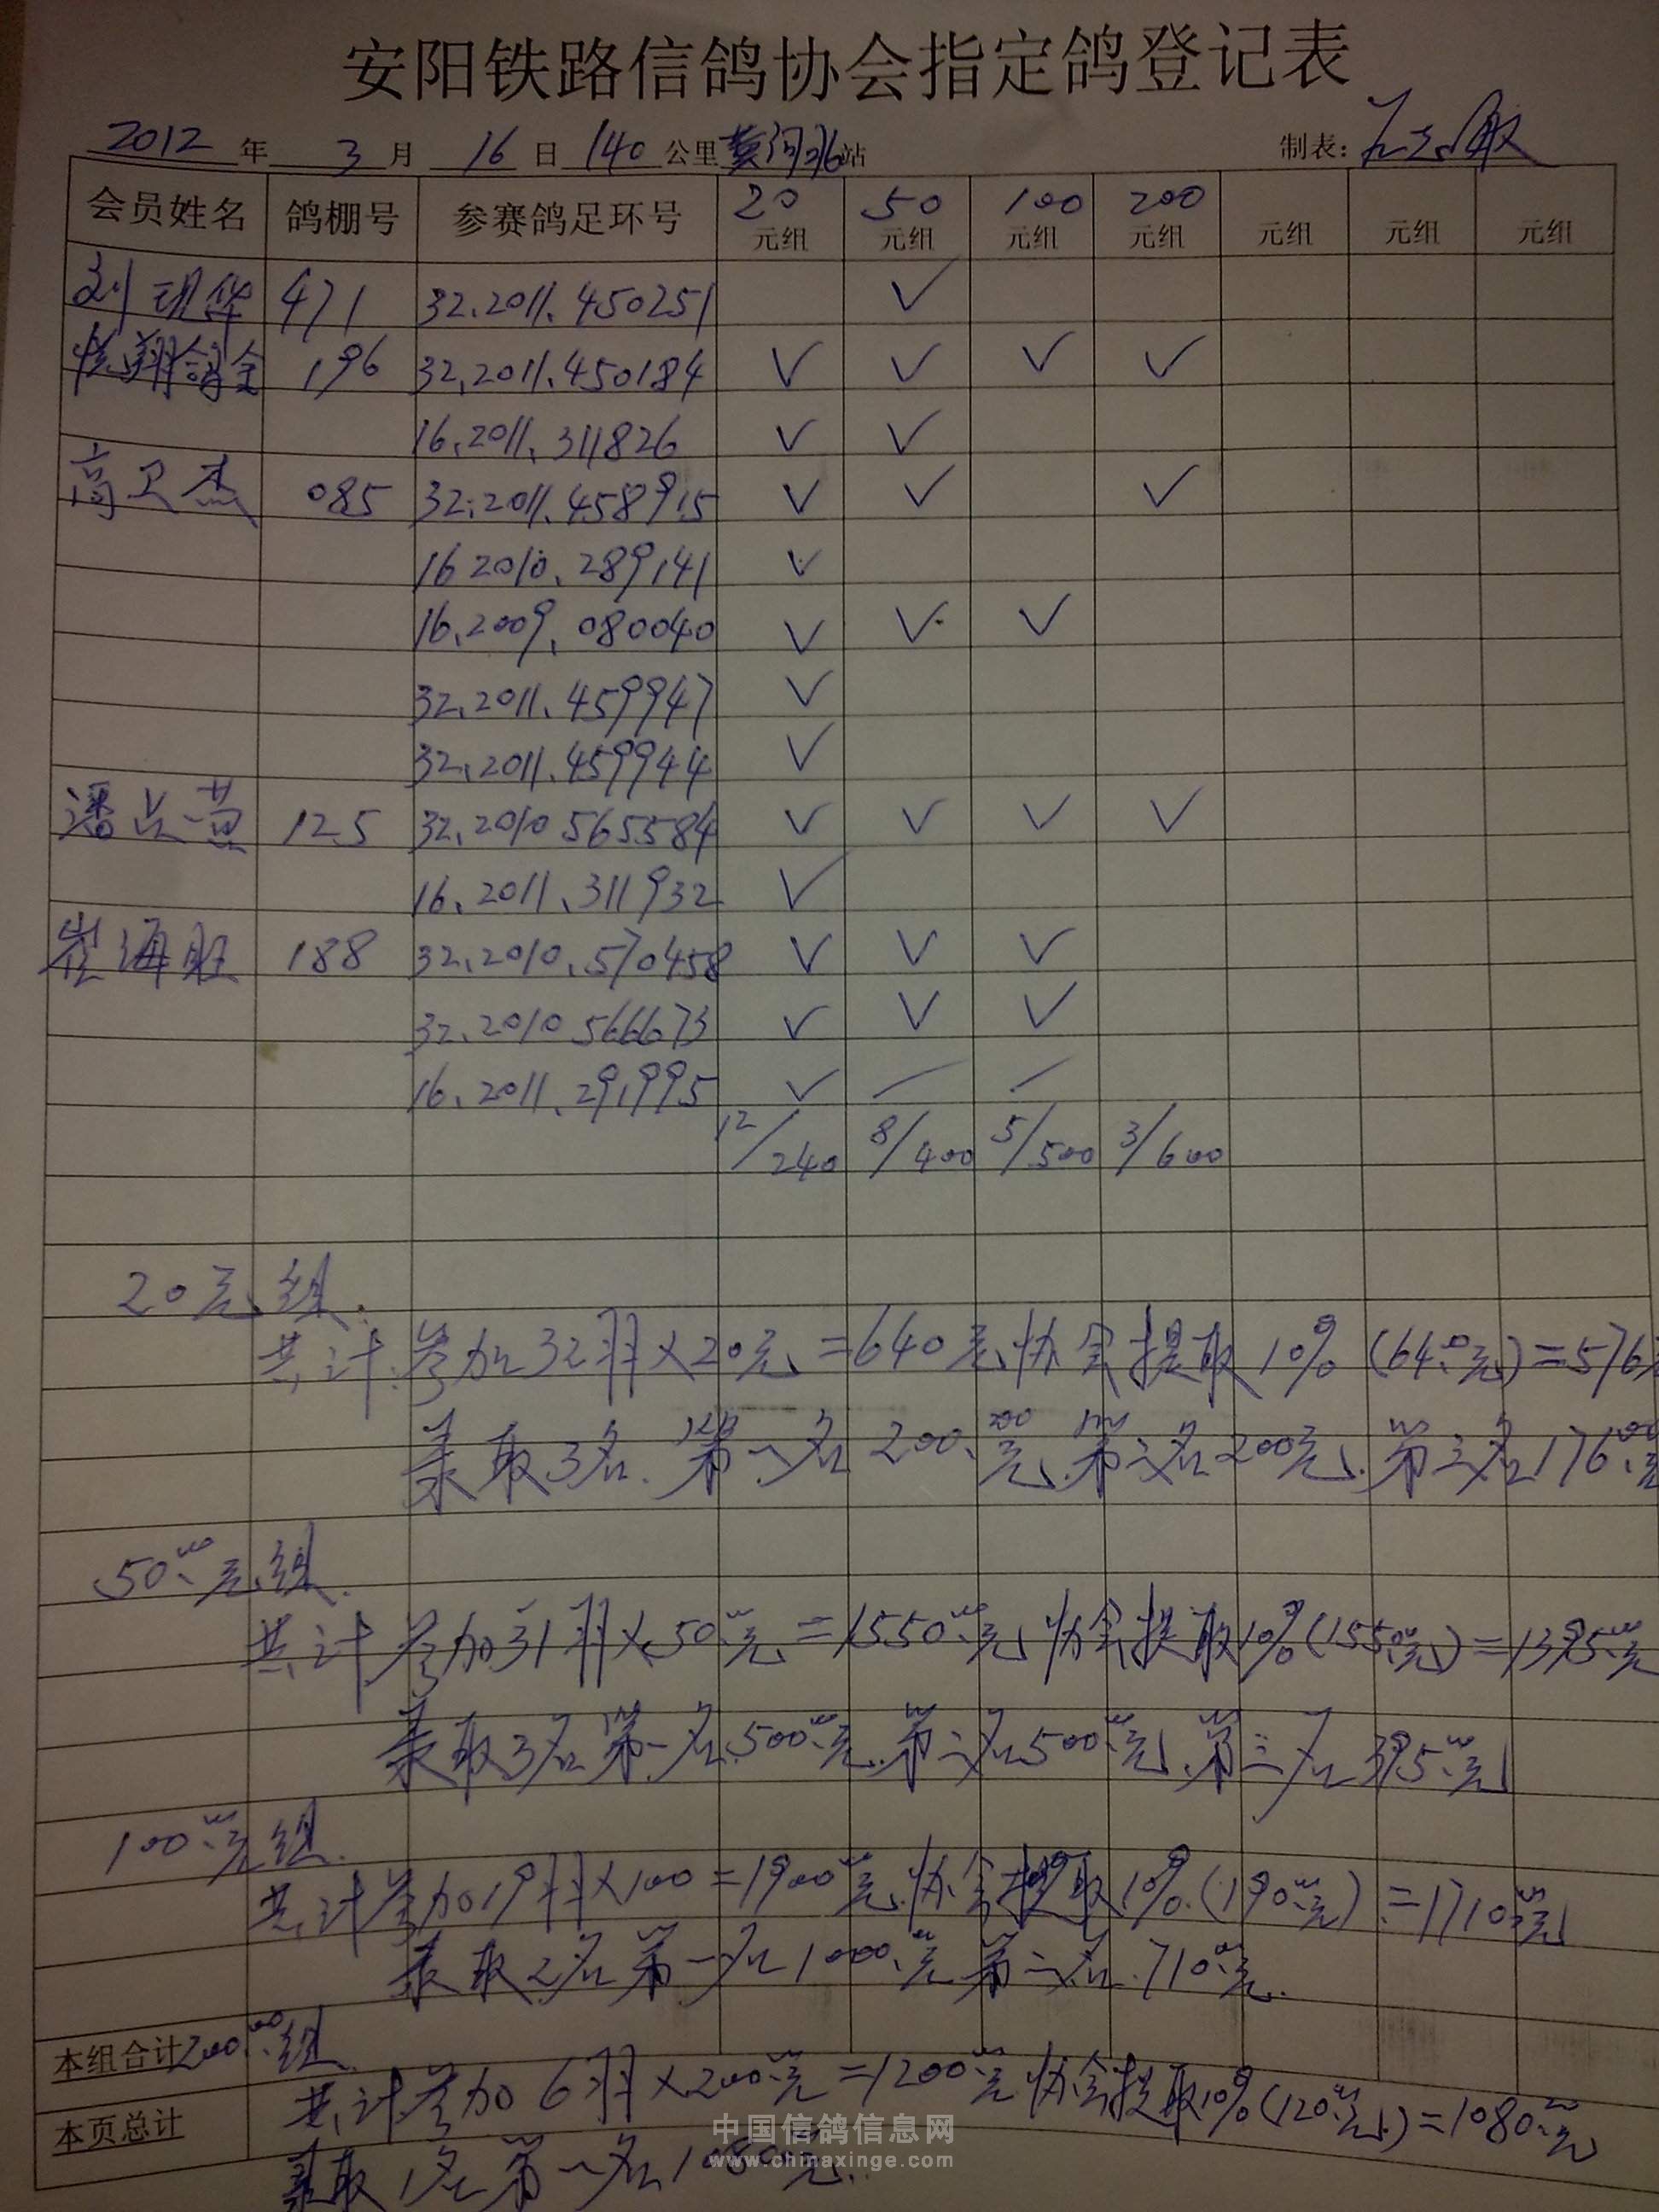 安阳铁路信鸽协会指定鸽登记表
2012 年 3 月 16 日 140 公里 黄河北站 制表:
会员姓名 鸽棚号 参赛鸽足环号 20元组 50元组 100元组 200元组 元组 元组 元组
刘现华 471 32.2011.450251 ✓
翔鸽舍 196 32.2011.450184 ✓ ✓ ✓ ✓
16.2011.311826 ✓ ✓
高卫杰 085 32.2011.458915 ✓ ✓ ✓
16 2010.289141 ✓
16.2009.080040 ✓ ✓ ✓
32.2011.459947 ✓
32.2011.459944 ✓
潘占苗 125 32.2010 565584 ✓ ✓ ✓ ✓
16.2011.311932 ✓
崔海旺 188 32.2010.570458 ✓ ✓ ✓
32.2010 566673 ✓ ✓ ✓
16.2011.291995 ✓ / /
12/240 8/400 5/500 3/600
20元组.
共计参加32羽×20元=640元协会提取10%(64.0元)=576元
录取3名.第一名200.00元.第二名200元.第三名176.00元
50.00元组.
共计参加31羽×50.00元=1550.00元协会提取10%(155.00元)=1395.00元
录取3名第一名500.00元.第二名500.00元.第三名395.00元
100.00元组.
共计参加19羽×100=1900.00元.协会提取10%.(190.00元)=1710.00元
录取2名第一名1000.00元第二名.710.00元.
本组合计 200.00组
共计参加6羽×200.00元=1200.00元协会提取10%(120.00元)=1080.00元
本页总计
录取1名第一名1080.00元.
中国信鸽信息网
www.chinaxinge.com